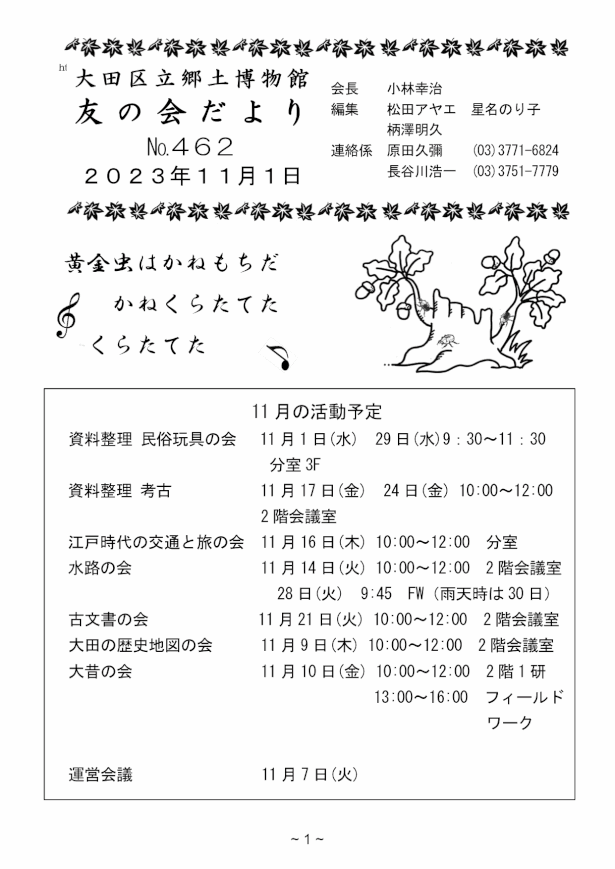 ht
大田区立郷土博物館
友の会だより
№462
2023年11月1日
会長 小林幸治
編集 松田アヤエ 星名のり子
柄澤明久
連絡係 原田久彌 (03)3771-6824
長谷川浩一 (03)3751-7779
黄金虫はかねもちだ
かねくらたてた
くらたてた
11月の活動予定
資料整理 民俗玩具の会 11月1日(水) 29日(水)9:30～11:30
分室3F
資料整理 考古 11月17日(金) 24日(金) 10:00～12:00
2階会議室
江戸時代の交通と旅の会 11月16日(木) 10:00～12:00 分室
水路の会 11月14日(火) 10:00～12:00 2階会議室
28日(火) 9:45 FW (雨天時は30日)
古文書の会 11月21日(火) 10:00～12:00 2階会議室
大田の歴史地図の会 11月9日(木) 10:00～12:00 2階会議室
大昔の会 11月10日(金) 10:00～12:00 2階1研
13:00～16:00 フィールド
ワーク
運営会議 11月7日(火)
～1～